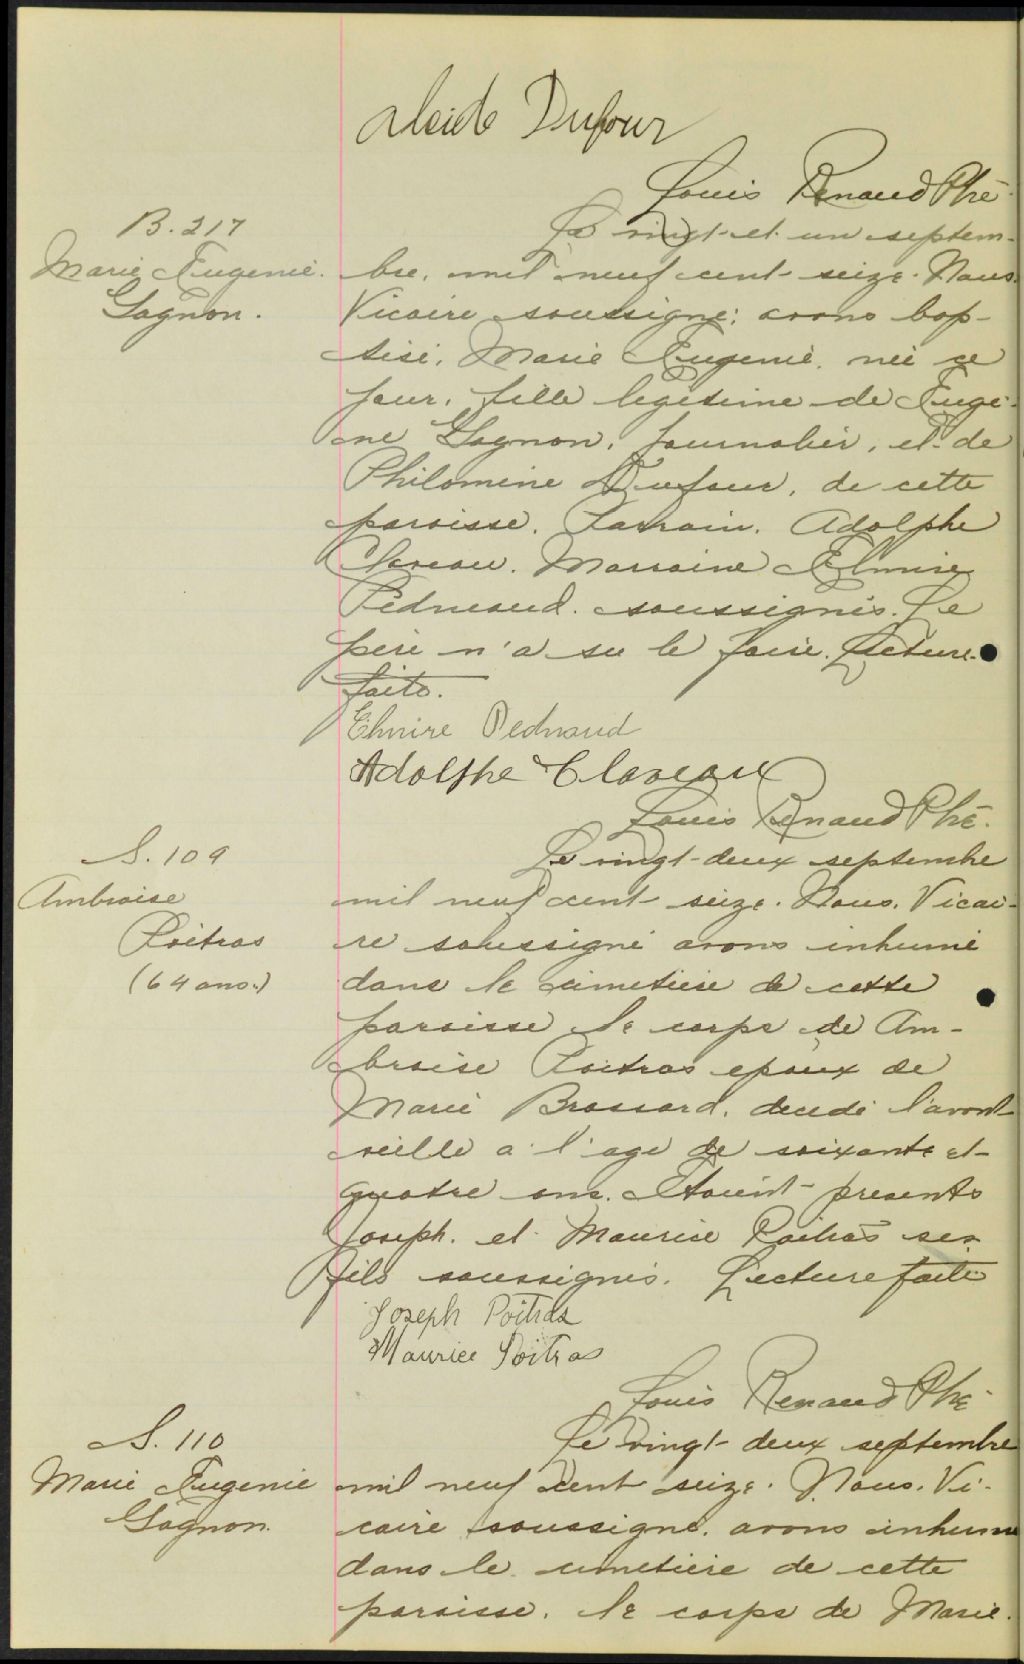 Alcide Dufour
Louis Renaud Ptre
B. 217
Marie Eugenie
Gagnon.
Le vingt-et-un septem-
bre, mil neuf cent seize. Nous
Vicaire soussigné, avons bap-
tisé, Marie Eugenie, née ce
jour, fille legitime de Euge-
ne Gagnon, journalier, et de
Philomine Dufour, de cette
paroisse. Parrain, Adolphe
Claveau. Marraine Elmire
Pedneaud. soussignés. Le
père n'a su le faire. Lecture
faite.
Elmire Pednaud
Adolphe Claveau
Louis Renaud Ptre.
S. 109
Ambroise
Poitras
(64 ans.)
Le vingt-deux septembre
mil neuf cent seize. Nous, Vicai-
re soussigné avons inhumé
dans le cimetiere de cette
paroisse le corps de Am-
broise Poitras epoux de
Marie Brassard, decedé l'avant
veille a l'age de soixante et
quatre ans. Etaient presents
Joseph. et Maurice Poitras ses
fils soussignés. Lecture faite
Joseph Poitras
Maurice Poitras
Louis Renaud Ptre
S. 110
Marie Eugenie
Gagnon.
Le vingt-deux septembre
mil neuf cent seize. Nous, Vi-
caire soussigné, avons inhumé
dans le cimetiere de cette
paroisse, le corps de Marie